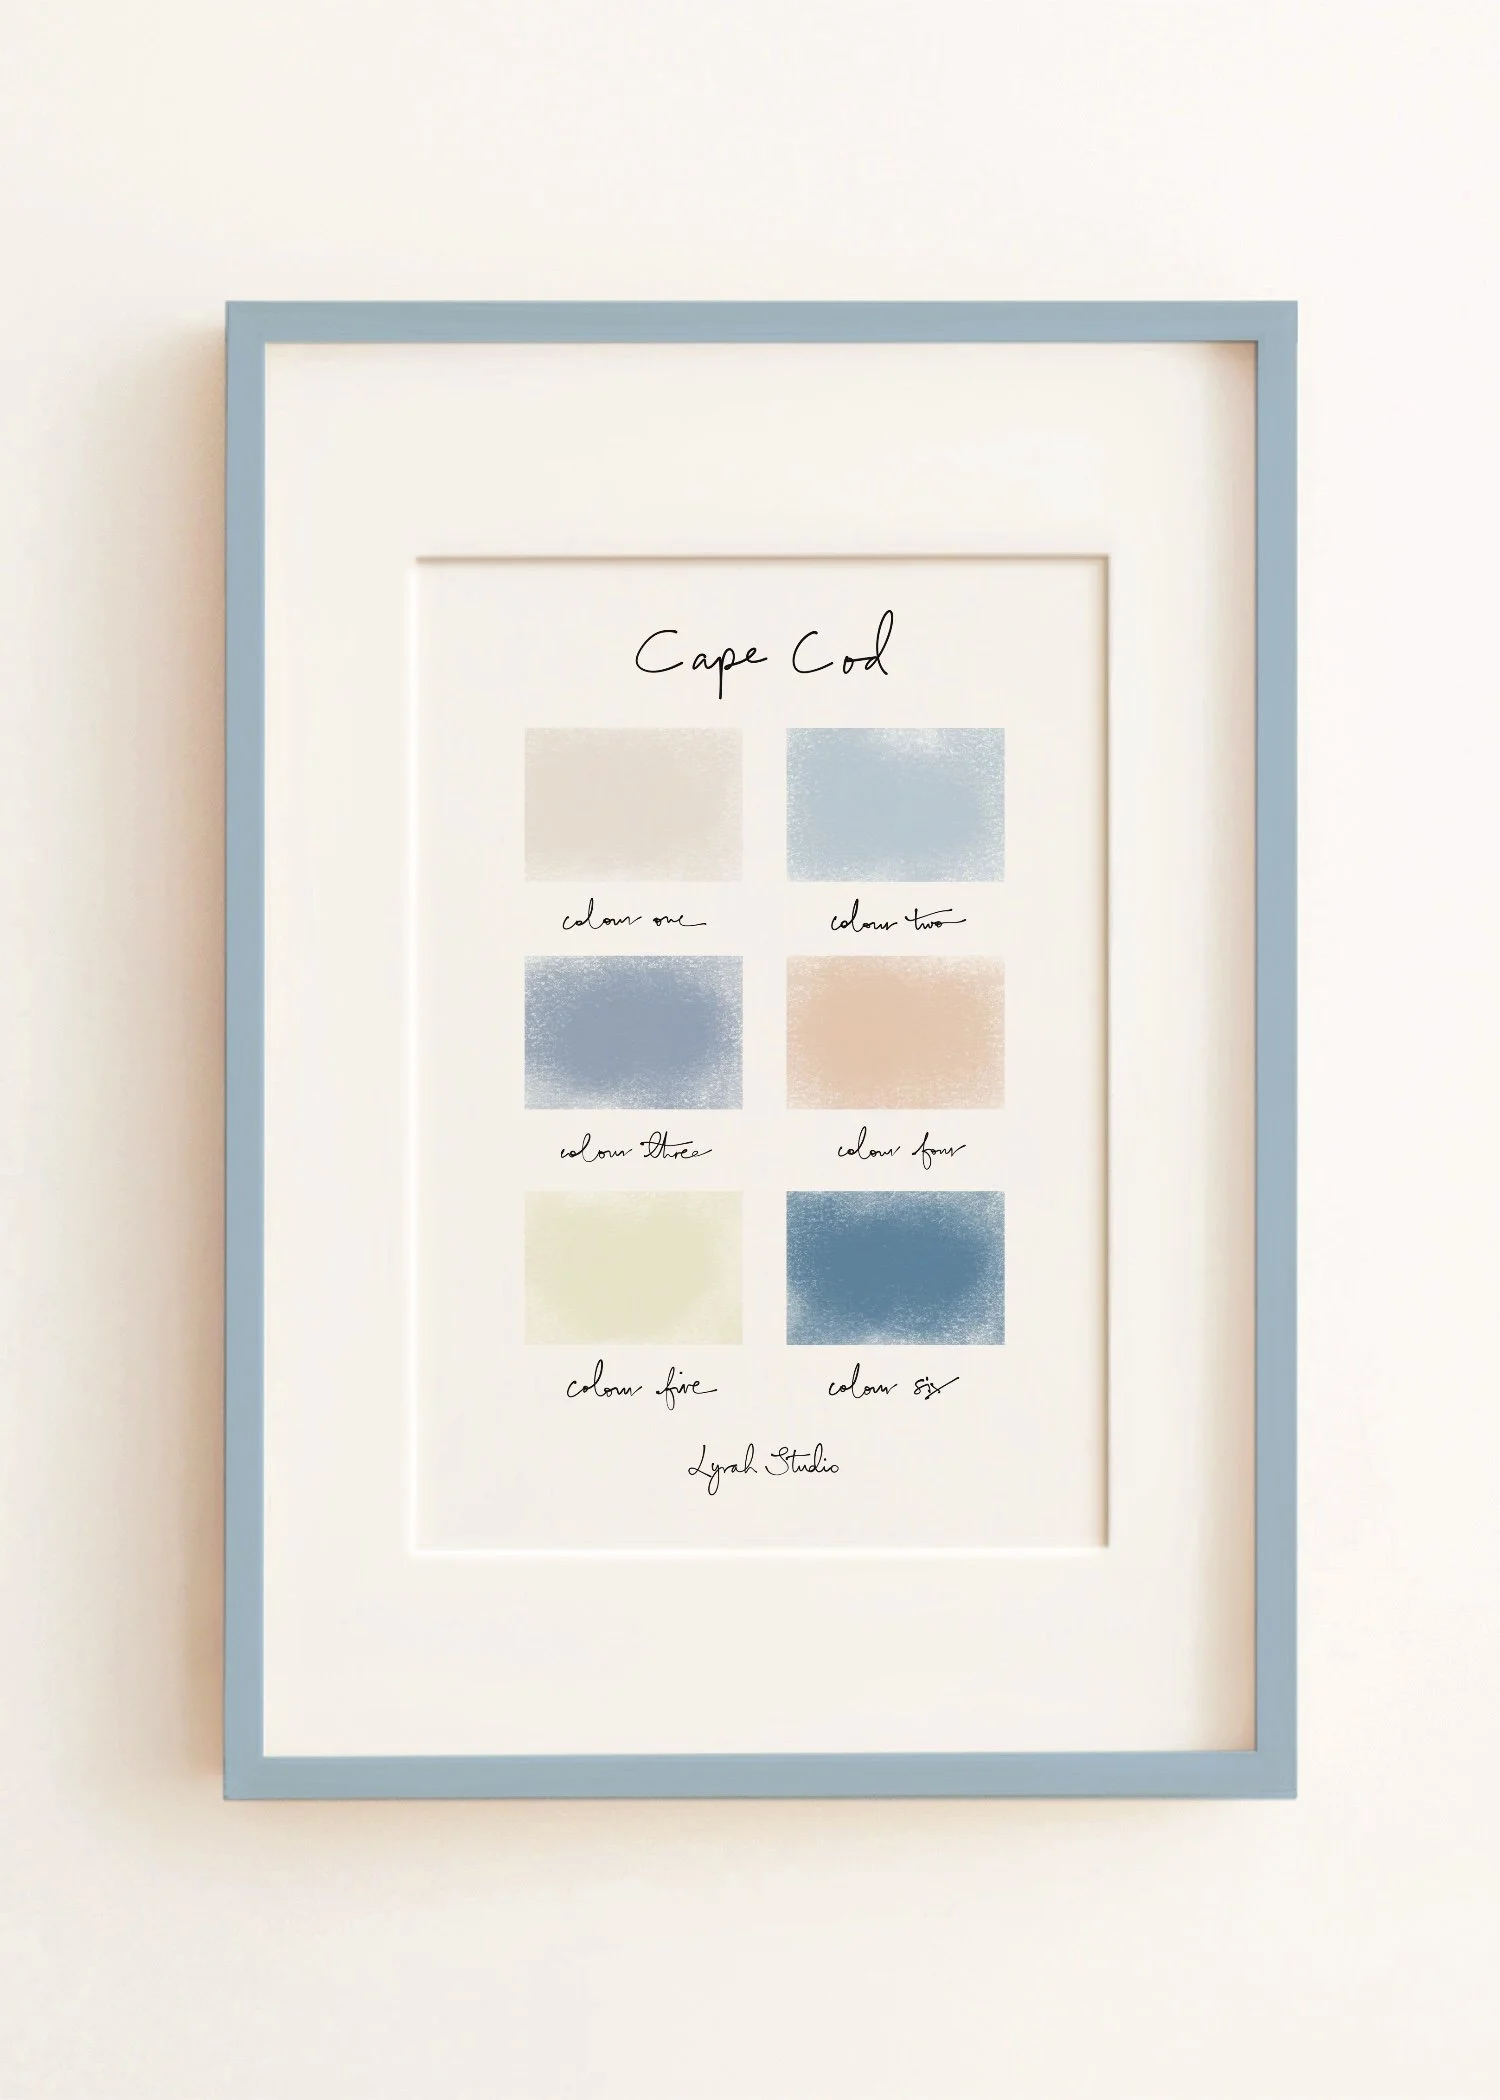 Cape Cod
colour one
colour two
colour three
colour four
colour five
colour six
Lyrah Studio